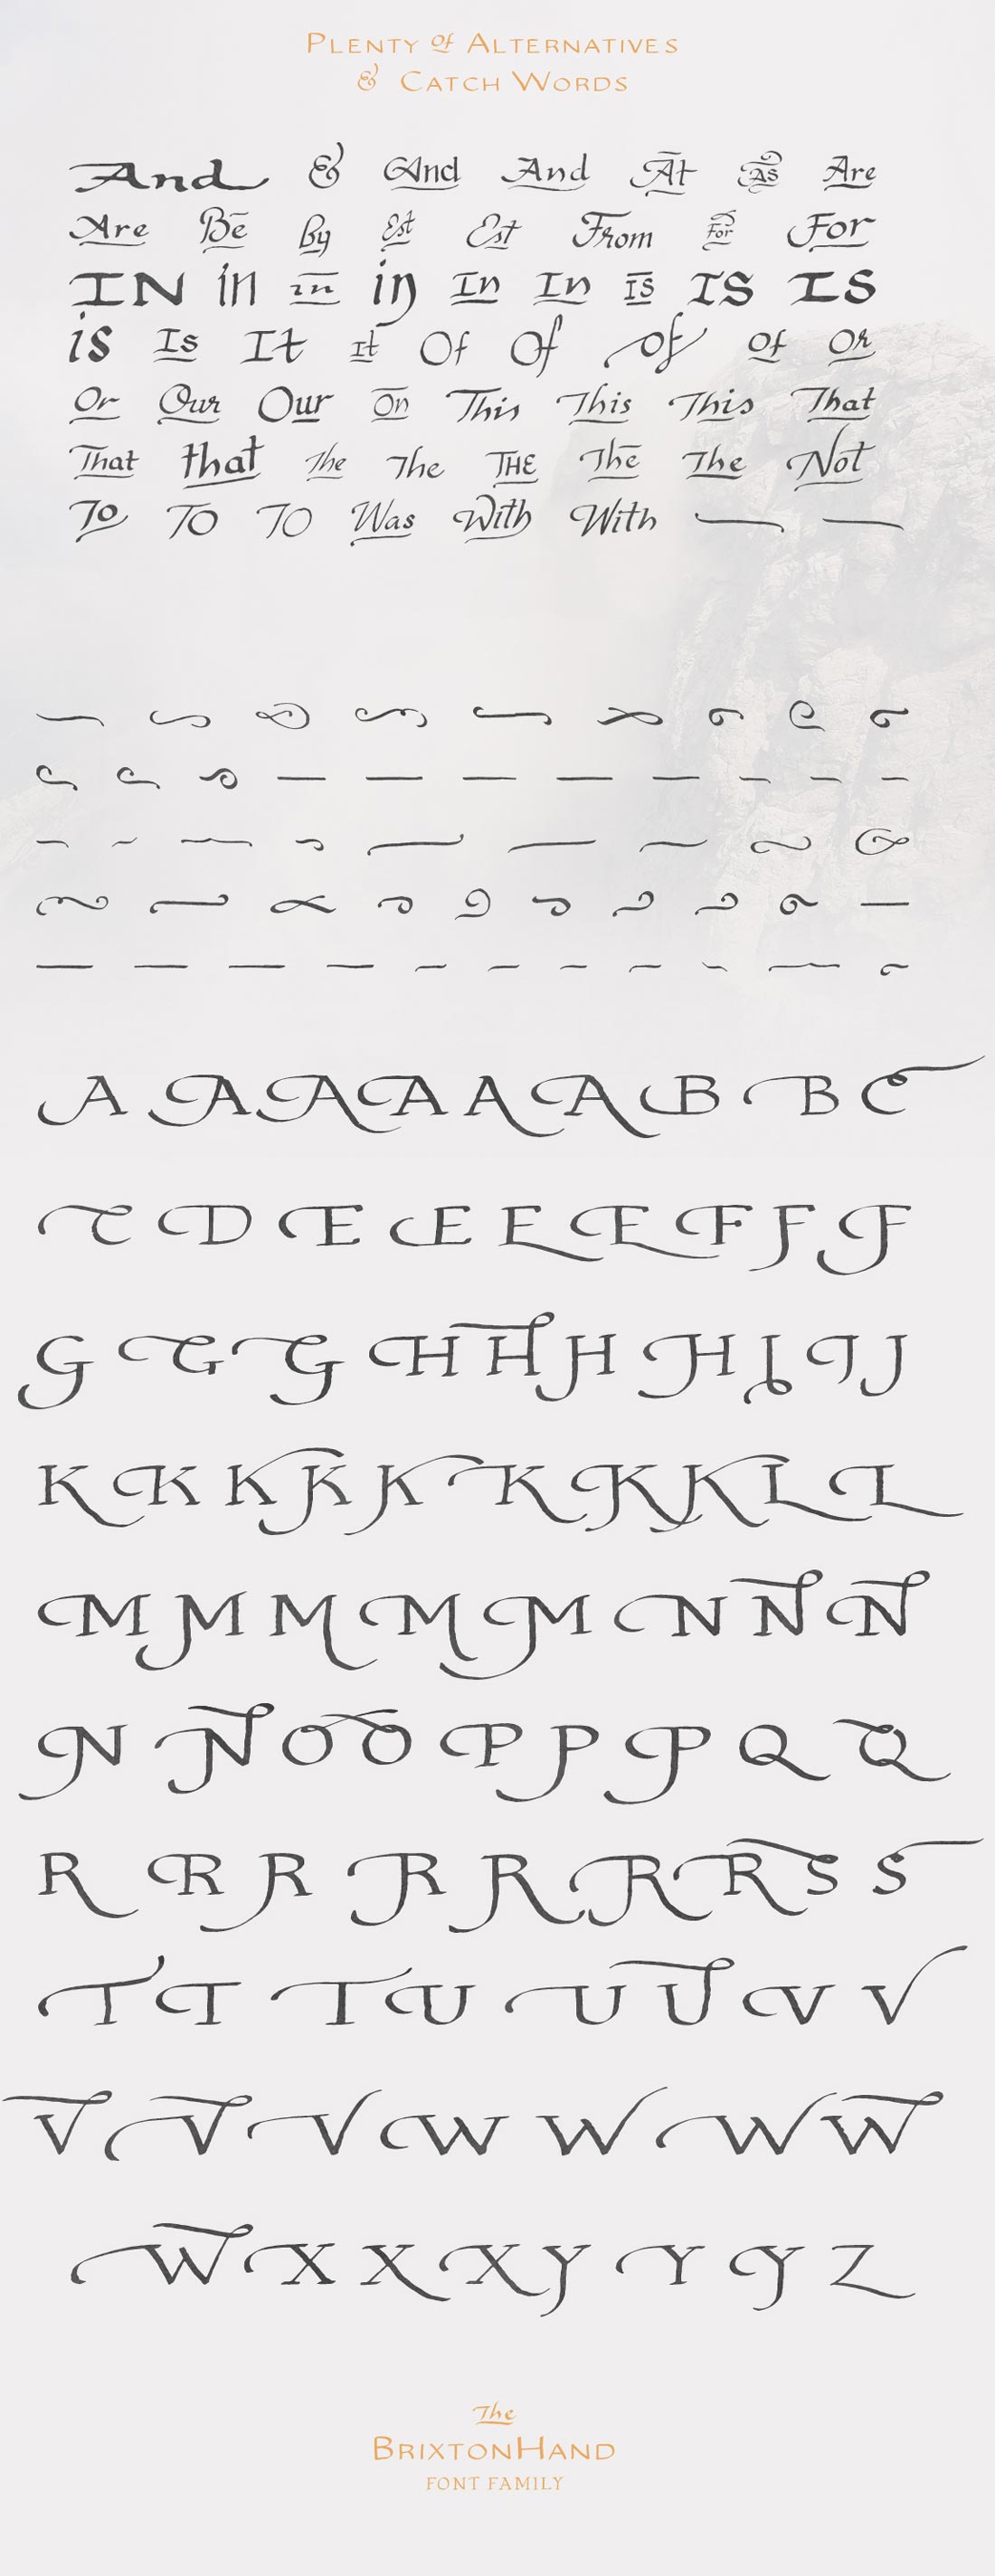 Plenty of Alternatives
& Catch Words
And & And And At As Are
Are Be By Est Est From For For
IN in in in In In IS IS IS
is Is It it Of Of of of Or
Or Our Our On This This This That
That that The The THE The The Not
To To To Was With With
A A A A A A B B C
C D E E E E F F F
G G G H H H H I J J
K K K K K K K K L L
M M M M M N N N
N N O O P P P Q Q
R R R R R R R S S
T T T U U U V V
V V V W W W W
W X X X Y Y Y Z
The
BrixtonHand
FONT FAMILY